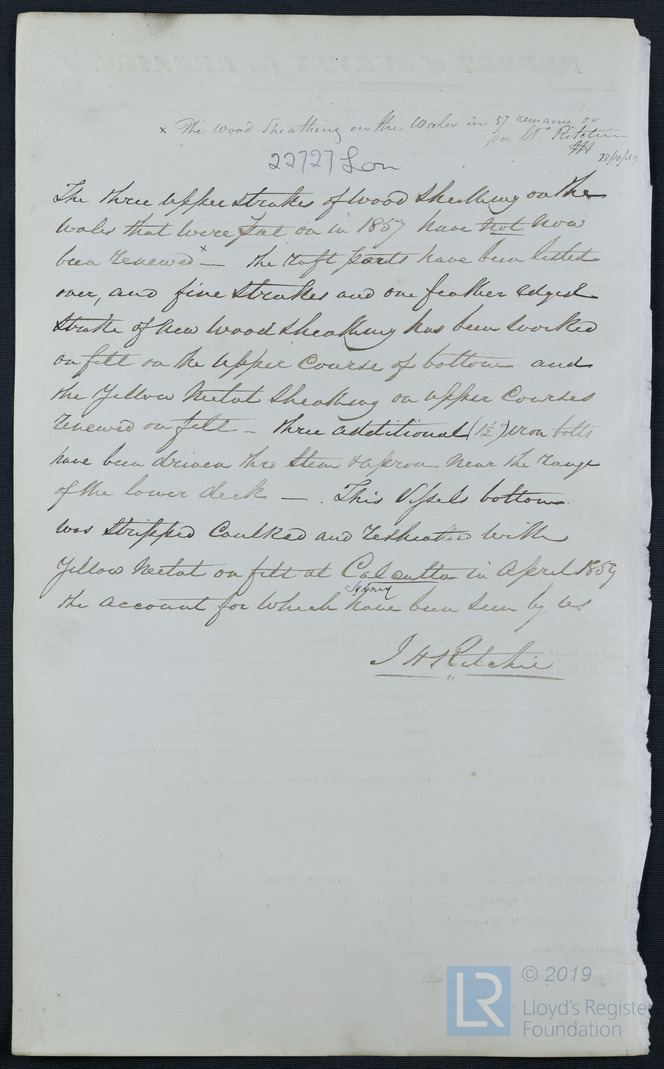 REPORT of SURVEY for REPAIRS
x The Wood Sheathing on the Wales in 57 remains on
per Mr Ritchie
28/10/59
22727 Lon
The three upper strakes of wood Sheathing on the
wales that were put on in 1857 have not now
been renewed x — The raft ports have been listed
over, and five strakes and one feather edged
strake of new wood sheathing has been worked
on felt on the upper course of bottom and
the Yellow Metal Sheathing on upper courses
renewed on felt — three additional (1½") Iron bolts
have been driven thro Stem & apron near the range
of the lower deck — . This Vessels bottom
was stripped Caulked and resheathed with
Yellow Metal on felt at Calcutta in April 1859
Sydney
the account for which have been seen by us
J H Ritchie
LR © 2019
Lloyd's Register
Foundation